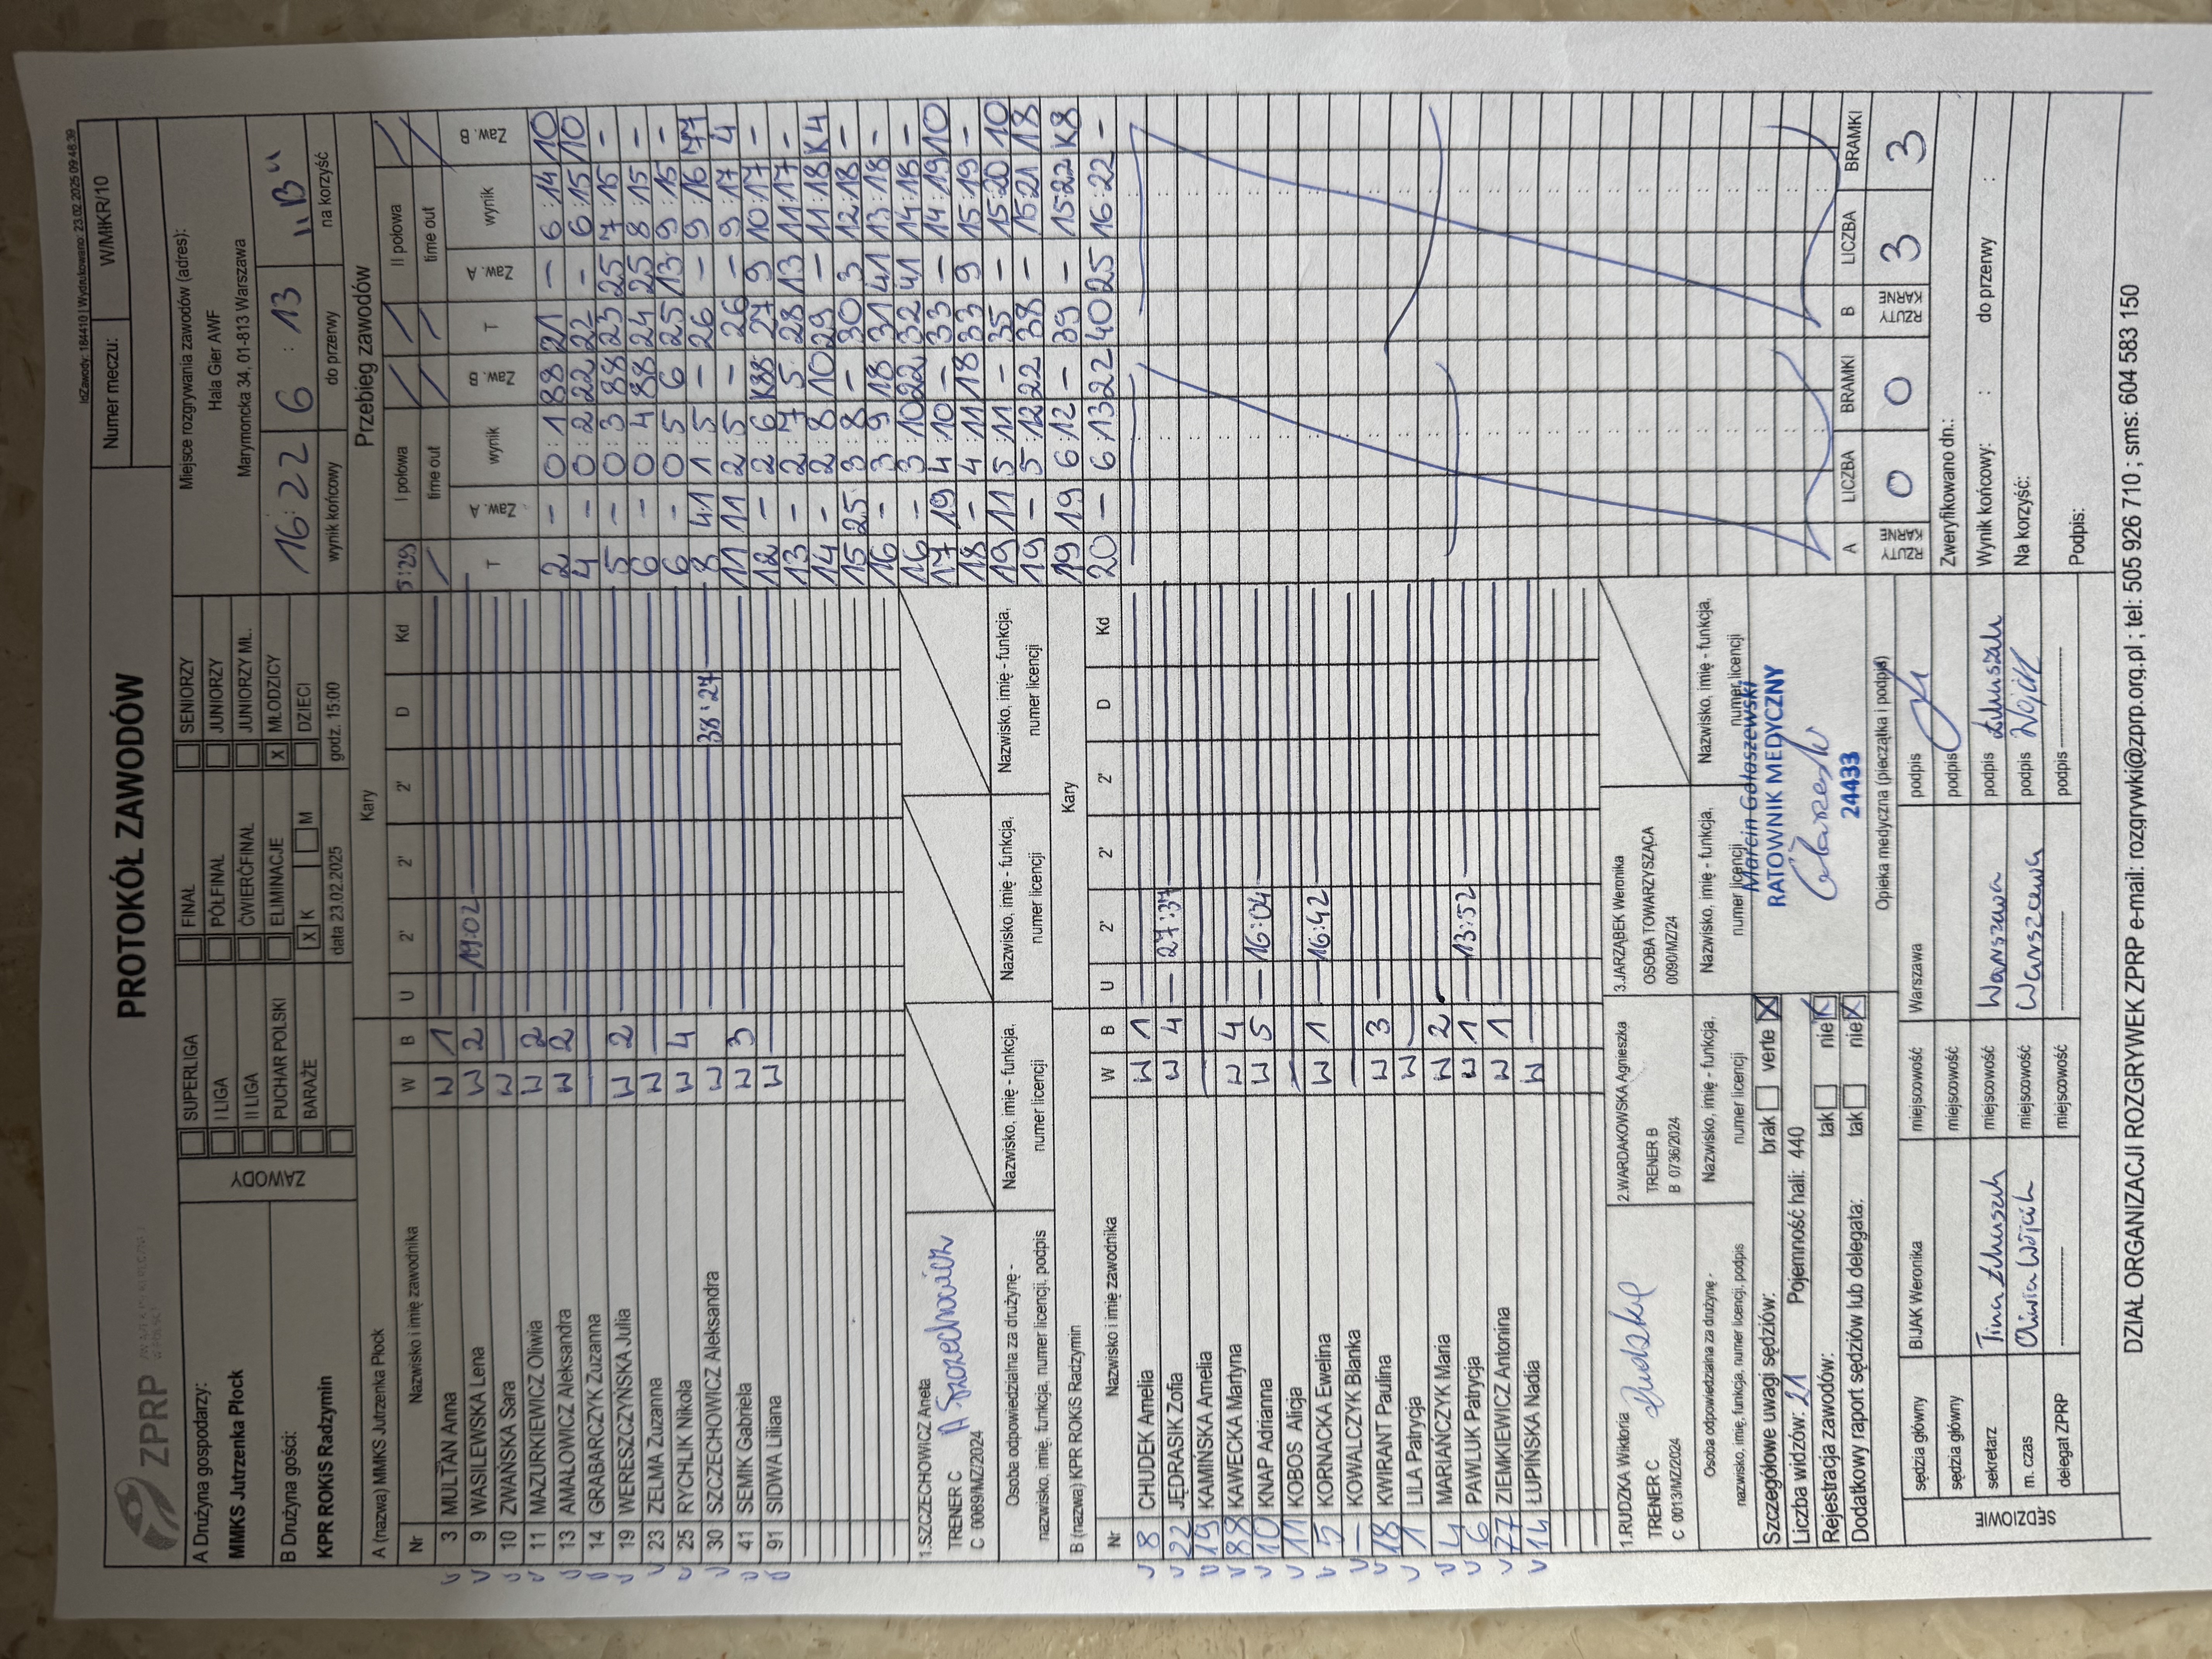 IdZawody: 184410 | Wydrukowano: 23.02.2025 09:48:39
ZPRP
PROTOKÓŁ ZAWODÓW
Numer meczu: W/MłKR/10
A Drużyna gospodarzy:
MMKS Jutrzenka Płock
B Drużyna gości:
KPR ROKiS Radzymin
ZAWODY
SUPERLIGA FINAŁ SENIORZY
I LIGA PÓŁFINAŁ JUNIORZY
II LIGA ĆWIERĆFINAŁ JUNIORZY MŁ.
PUCHAR POLSKI ELIMINACJE X MŁODZICY
BARAŻE X K M DZIECI
data 23.02.2025 godz. 15:00
Miejsce rozgrywania zawodów (adres):
Hala Gier AWF
Marymoncka 34, 01-813 Warszawa
16:22 6:13 "B"
wynik końcowy do przerwy na korzyść
A (nazwa) MMKS Jutrzenka Płock Kary
Nr Nazwisko i imię zawodnika W B U 2' 2' 2' D Kd
3 MULTAN Anna W 1
9 WASILEWSKA Lena W 2 19:02
10 ZWAŃSKA Sara W
11 MAZURKIEWICZ Oliwia W 2
13 AMAŁOWICZ Aleksandra W 2
14 GRABARCZYK Zuzanna
19 WERESZCZYŃSKA Julia W 2
23 ZELMA Zuzanna W
25 RYCHLIK Nikola W 4
30 SZCZECHOWICZ Aleksandra W 38:27
41 SEMIK Gabriela W 3
91 SIDWA Liliana W
1.SZCZECHOWICZ Aneta
TRENER C
C 0089/MZ/2024
A Szczechowicz
Osoba odpowiedzialna za drużynę -
nazwisko, imię, funkcja, numer licencji, podpis
Nazwisko, imię - funkcja,
numer licencji
Nazwisko, imię - funkcja,
numer licencji
Nazwisko, imię - funkcja,
numer licencji
B (nazwa) KPR ROKiS Radzymin Kary
Nr Nazwisko i imię zawodnika W B U 2' 2' 2' D Kd
8 CHUDEK Amelia W 1
22 JĘDRASIK Zofia W 4 27:37
19 KAMIŃSKA Amelia
88 KAWECKA Martyna W 4
10 KNAP Adrianna W 5 16:04
11 KOBOS Alicja
5 KORNACKA Ewelina W 1 16:42
- KOWALCZYK Blanka
18 KWIRANT Paulina W 3
1 LILA Patrycja W
4 MARIAŃCZYK Maria W 2
6 PAWLUK Patrycja W 1 13:52
77 ZIEMKIEWICZ Antonina W 1
14 ŁUPIŃSKA Nadia W
1.RUDZKA Wiktoria
TRENER C
C 0013/MZ/2024
2.WARDAKOWSKA Agnieszka
TRENER B
B 0736/2024
3.JARZĄBEK Weronika
OSOBA TOWARZYSZĄCA
0090/MZ/24
Osoba odpowiedzialna za drużynę -
nazwisko, imię, funkcja, numer licencji, podpis
Nazwisko, imię - funkcja,
numer licencji
Nazwisko, imię - funkcja,
numer licencji
Nazwisko, imię - funkcja,
numer licencji
Przebieg zawodów
5:29 I połowa II połowa
time out time out
T Zaw. A wynik Zaw. B T Zaw. A wynik Zaw. B
2 - 0:1 88 21 - 6:14 10
4 - 0:2 22 22 - 6:15 10
5 - 0:3 88 23 25 7:15 -
6 - 0:4 88 24 25 8:15 -
6 - 0:5 6 25 13 9:15 -
8 41 1:5 - 26 - 9:16 77
11 11 2:5 - 26 - 9:17 4
12 - 2:6 K88 27 9 10:17 -
13 - 2:7 5 28 13 11:17 -
14 - 2:8 10 29 - 11:18 K4
15 25 3:8 - 30 3 12:18 -
16 - 3:9 18 31 41 13:18 -
16 - 3:10 22 32 41 14:18 -
17 19 4:10 - 33 - 14:19 10
18 - 4:11 18 33 9 15:19 -
19 11 5:11 - 35 - 15:20 10
19 - 5:12 22 38 - 15:21 18
19 19 6:12 - 39 - 15:22 K8
20 - 6:13 22 40 25 16:22 -
RZUTY KARNE A LICZBA BRAMKI RZUTY KARNE B LICZBA BRAMKI
0 0 3 3
Szczegółowe uwagi sędziów: brak verte X
Liczba widzów: 21 Pojemność hali: 440
Rejestracja zawodów: tak nie X
Dodatkowy raport sędziów lub delegata: tak nie X
Marcin Gołaszewski
RATOWNIK MEDYCZNY
24433
Opieka medyczna (pieczątka i podpis)
Zweryfikowano dn.:
Wynik końcowy: : do przerwy :
Na korzyść:
Podpis:
SĘDZIOWIE
sędzia główny BIJAK Weronika miejscowość Warszawa podpis
sędzia główny miejscowość podpis
sekretarz miejscowość Warszawa podpis
m. czas Oliwia Wójcik miejscowość Warszawa podpis Wójcik
delegat ZPRP ---------- miejscowość ---------- podpis ----------
DZIAŁ ORGANIZACJI ROZGRYWEK ZPRP e-mail: rozgrywki@zprp.org.pl ; tel: 505 926 710 ; sms: 604 583 150